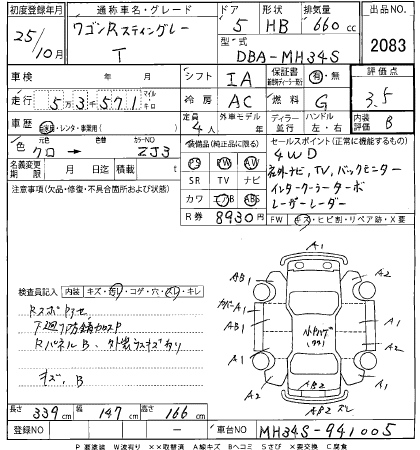 初度登録年月 通称車名・グレード ドア 形状 排気量 出品NO.
25/10月 ワゴンRスティングレー T 5 HB 660cc 2083
型式 DBA-MH34S
車検 年 月 シフト IA 保証書 有・無 評価点
走行 5万3千571 マイル キロ 冷房 AC 燃料 G 3.5
車歴 自家用・レンタ・事業用( ) 定員 4人 外車モデル 年 ディラー 並行 ハンドル 左・右 内装評価 B
色 元色 クロ 色替 カラーNO ZJ3 装備品(純正品に限る) セールスポイント(正常に機能するもの)
名義変更期限 月 日迄 積載 t PS PW AW 4WD
注意事項(欠品・修復・不具合箇所および状態) SR TV ナビ 社外ナビ,TV,バックモニター
カワ エアB ABS インタークーラーターボ
R券 8930円 レーザーレーダー
FW キズ・ヒビ割・リペア跡・X要
検査員記入 内装 キズ・汚レ・コゲ・穴・スレ・キレ
RスポPサビ
下廻り防錆加工P
RパネルB、外装ウスキズ有り
キズ、B
A1
AB1 A2
カバーA1 A1
AB1
A1 A2
AB2
AP2 ズレ
長さ 339cm 幅 147cm 高さ 166cm
登録NO ー 車台NO MH34S-941005
P 要塗装 W波有り ××取替済 A線キズ Bヘコミ Sさび ×要交換 C腐食